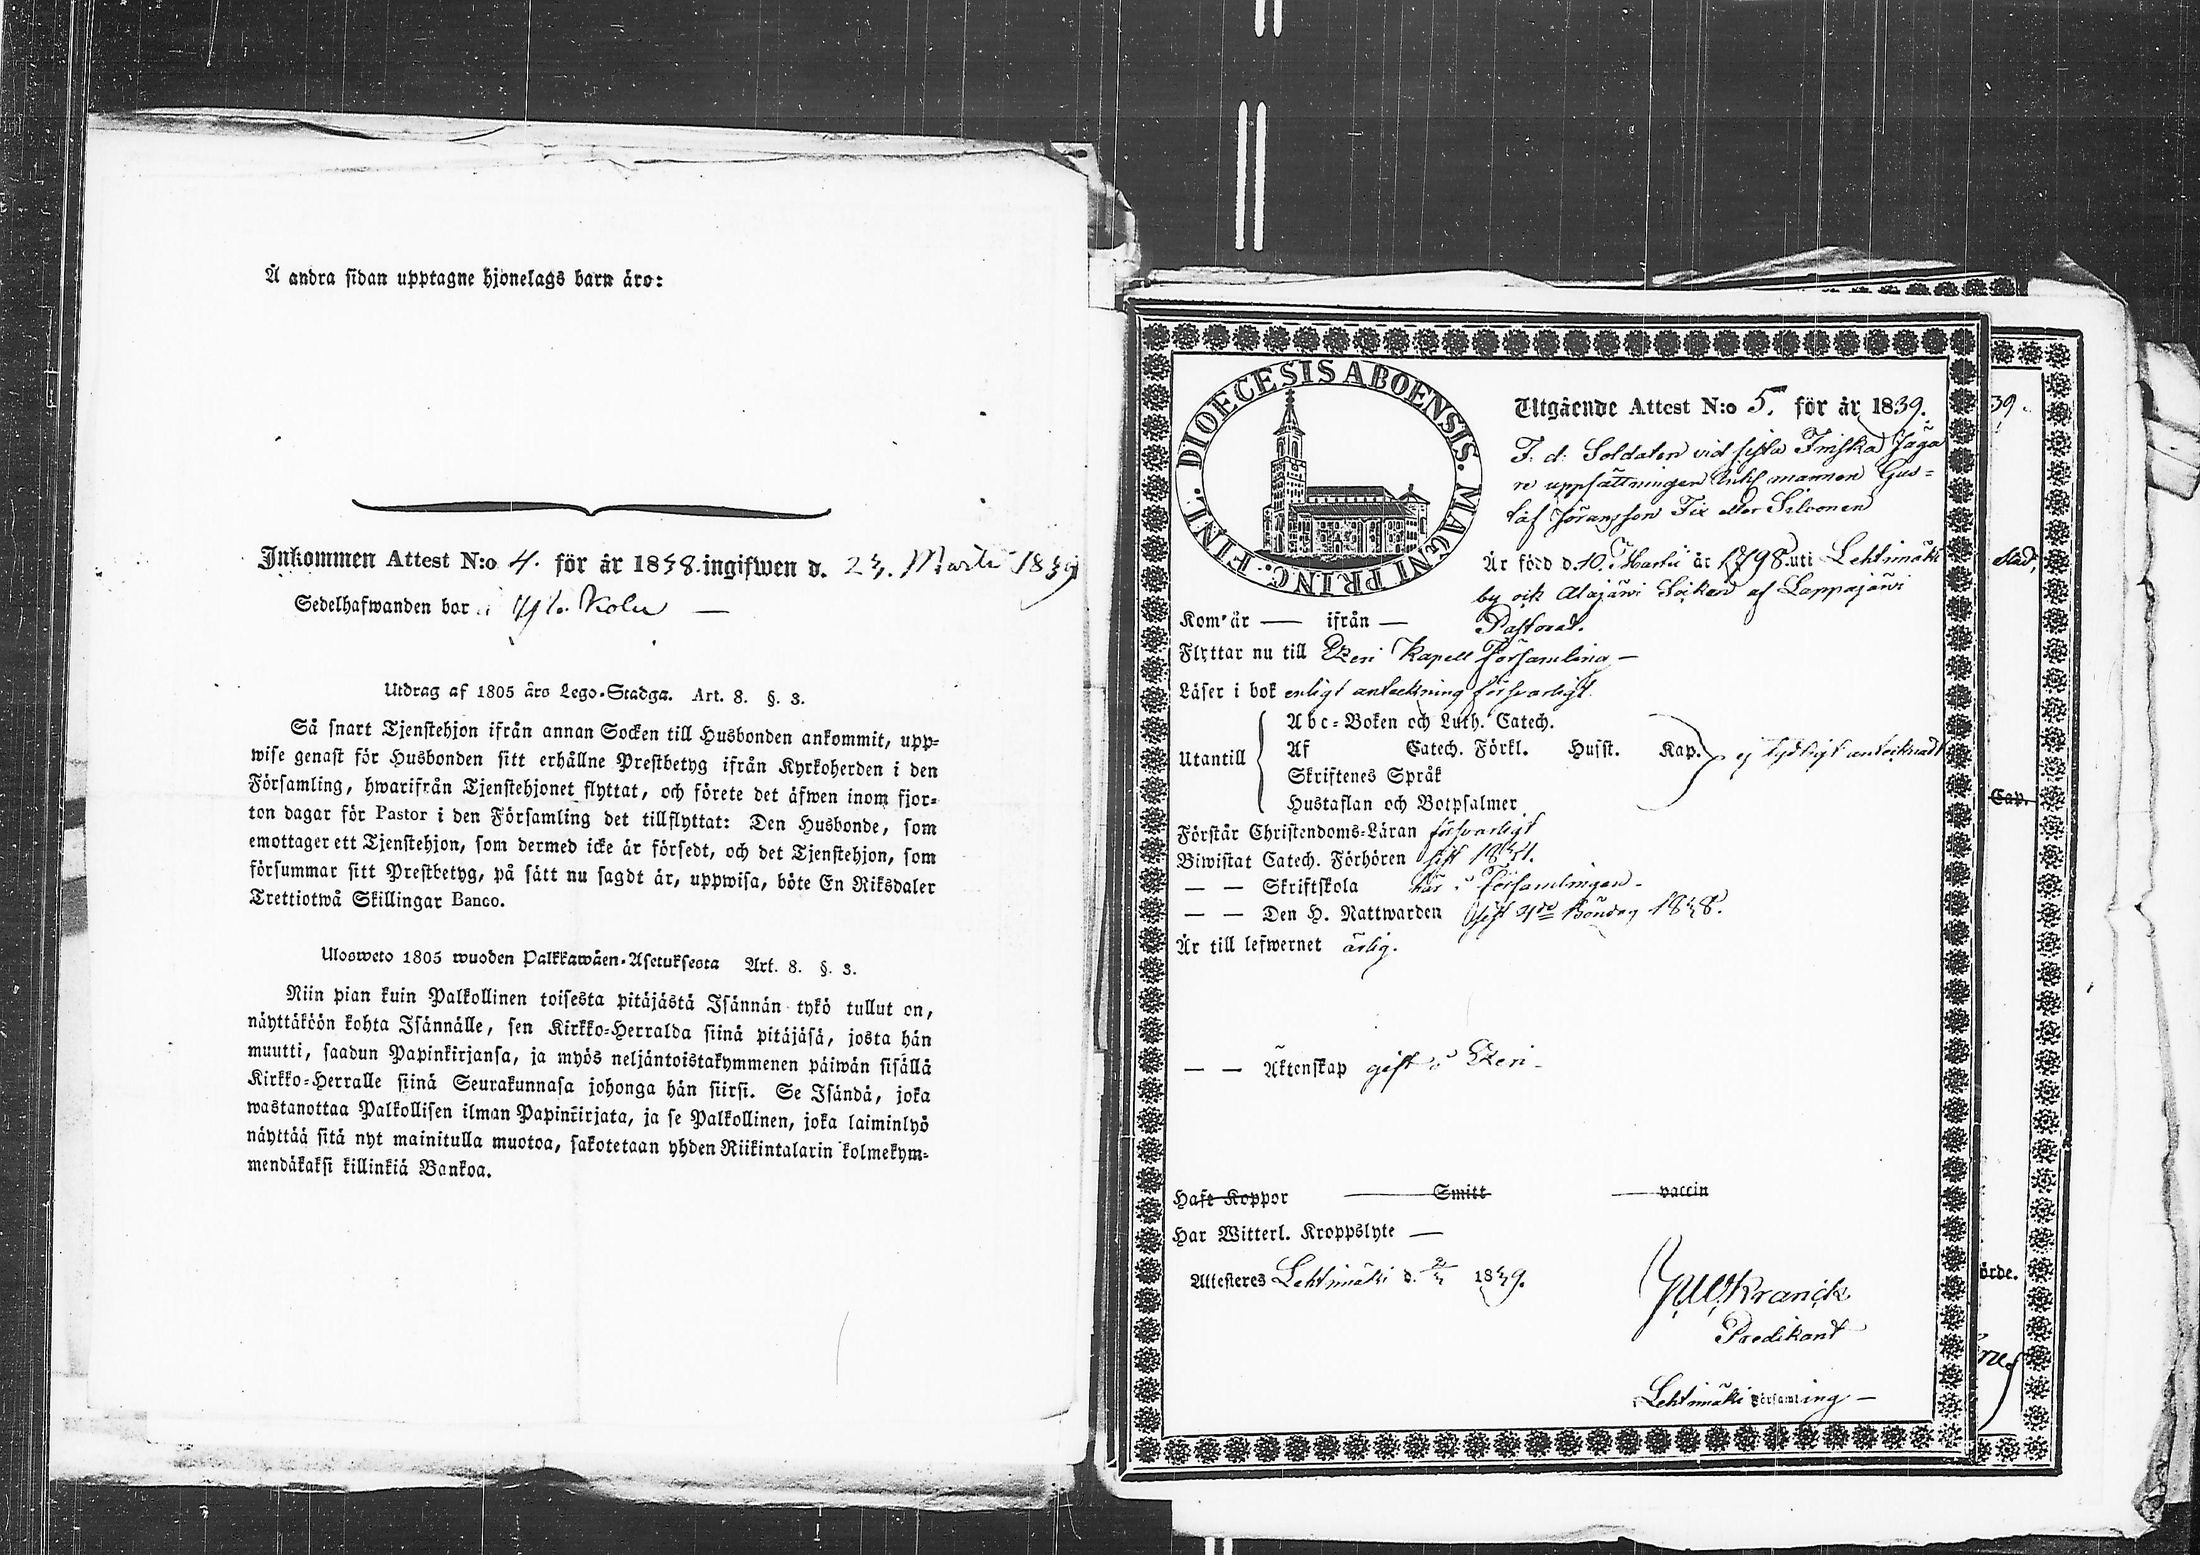 Å andra sidan upptagne hjonelags barn äro:
Inkommen Attest N:o 4. för år 1838. ingifwen d. 23. Martii 1839
Sedelhafwanden bor i
Utdrag af 1805 års Lego-Stadga. Art. 8. §. 3.
Så snart Tjenstehjon ifrån annan Socken till Husbonden ankommit, upp-
wise genast för Husbonden sitt erhållne Prestbetyg ifrån Kyrkoherden i den
Församling, hwarifrån Tjenstehjonet flyttat, och förete det äfwen inom fjor-
ton dagar för Pastor i den Församling det tillflyttat: Den Husbonde, som
emottager ett Tjenstehjon, som dermed icke är försedt, och det Tjenstehjon, som
försummar sitt Prestbetyg, på sätt nu sagdt är, uppwisa, böte En Riksdaler
Trettiotwå Skillingar Banco.
Ulosweto 1805 wuoden Palkkawäen-Asetuksesta Art. 8. §. 3.
Niin pian kuin Palkollinen toisesta pitäjästä Isännän tykö tullut on,
näyttäköön kohta Isännälle, sen Kirkko-Herralda siinä pitäjäsä, josta hän
muutti, saadun Papinkirjansa, ja myös neljäntoistakymmenen päiwän sisällä
Kirkko-Herralle siinä Seurakunnasa johonga hän siirsi. Se Isändä, joka
wastanottaa Palkollisen ilman Papinkirjata, ja se Palkollinen, joka laiminlyö
näyttää sitä nyt mainitulla muotoa, sakotetaan yhden Riikintalarin kolmekym-
mendäkaksi killinkiä Bankoa.
DIOECESIS ABOENSIS. MAGNI PRINC. FINL.
Utgående Attest N:o 5. för år 1839.
F. d. Soldaten vid sista Finska Jäga
re uppsättningen Enkl mannen Gus-
taf Jöransson Fix eller Silvonen
Är född d. 10. Martii år 1798 uti Lehtimäki
by och Alajärvi Socken af Lappajärvi
Pastorat.
Kom år — ifrån —
Flyttar nu till Etzeri Kapell Församling —
Läser i bok enligt anteckning försvarligt
Utantill
Abc-Boken och Luth. Catech.
Af Catech. Förkl. Husst. Kap. ej tydligt antecknadt
Skriftenes Språk
Hustaflan och Botpsalmer
Förstår Christendoms-Läran försvarligt
Biwistat Catech. Förhören sist 1834.
— — Skriftskola här i Församlingen.
— — Den H. Nattwarden sist Böndag 1838.
Är till lefwernet ärlig.
— — Äktenskap gift i Etzeri —
Haft Koppor Smitt vaccin
Har Witterl. Kroppslyte —
Attesteres Lehtimäki d. 1839.
Kranck
Predikant
Lehtimäki Församling —
39.
stad,
Cap.
örde.